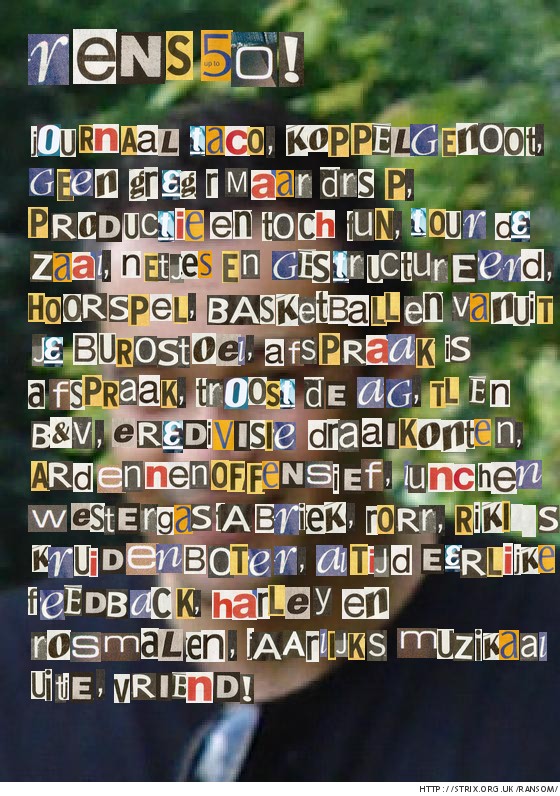 rens50!
up to
journaal taco, koppelgenoot,
Geen greg r maar drs P,
Productie en toch fun, tour de
zaal, netjes en gestructureerd,
hoorspel, basketballen vanuit
je burostoel, afspraak is
afspraak, troost de AG, TL en
B&V, eredivisie draaikonten,
Ardennenoffensief, lunchen
westergasfabriek, rorr, Rikl s
kruidenboter, altijd eerlijke
feedback, harley en
rosmalen, jaarlijks muzikaal
uitje, vriend!
HTTP://STRIX.ORG.UK/RANSOM/